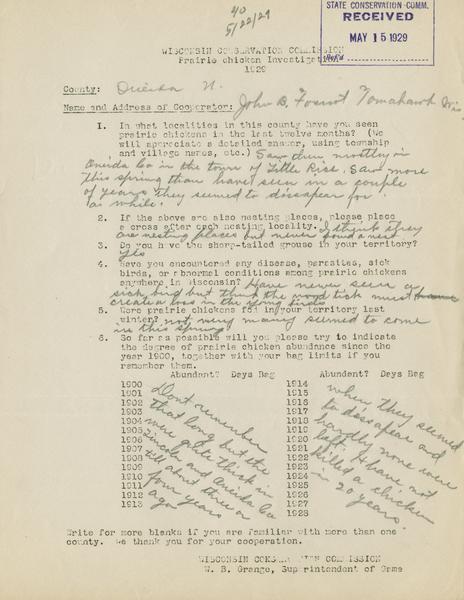 STATE CONSERVATION COMM.
RECEIVED
MAY 15 1929
Ref'd
40
5/22/29
WISCONSIN CONSERVATION COMMISSION
Prairie chicken Investigation
1929
County: Oneida
Name and Address of Cooperator: John B. Tomahawk Wis
1. In what localities in this county have you seen
prairie chickens in the last twelve months? (We
will appreciate a detailed answer, using township
and village names, etc.) Saw them mostly in
Oneida Co in the town of Little Rice. Saw more
this spring than have seen in a couple
of years they seemed to dissapear for
a while.
2. If the above are also nesting places, please place
a cross after each nesting locality. I think they
are nesting places but never found a nest
3. Do you have the sharp-tailed grouse in your territory?
Yes
4. Have you encountered any disease, parasites, sick
birds, or abnormal conditions among prairie chickens
anywhere in Wisconsin? Have never seen a
sick bird but think the wood tick must
create a loss in the young birds
5. Were prairie chickens fed in your territory last
winter? not very many seemed to come
in this spring
6. So far as possible will you please try to indicate
the degree of prairie chicken abundance since the
year 1900, together with your bag limits if you
remember them.
Abundant? Days Bag Abundant? Days Bag
1900 1914
1901 1915
1902 1916
1903 1917
1904 1918
1905 1919
1906 1920
1907 1921
1908 1922
1909 1923
1910 1924
1911 1925
1912 1926
1913 1927
1928
Dont remember
that long but the
were quite thick in
Lincoln and Oneida Co
till about three or
four years
ago
when they seemed
to dissapear and
hardly none were
left. I have not
killed a chicken
in 20 years
Write for more blanks if you are familiar with more than one
county. We thank you for your cooperation.
WISCONSIN CONSERVATION COMMISSION
W. B. Grange, Superintendent of Game